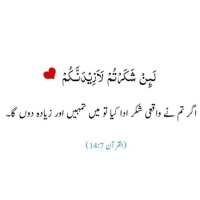 لَئِنْ شَكَرْتُمْ لَاَزِيْدَنَّكُمْ
اگر تم نے واقعی شکر ادا کیا تو میں تمہیں اور زیادہ دوں گا۔
(القرآن 14:7)